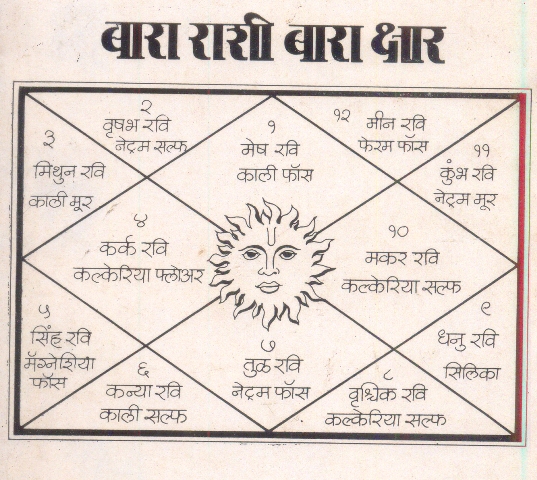 बारा राशी बारा क्षार
१
मेष रवि
काली फॉस
२
वृषभ रवि
नेट्रम सल्फ
३
मिथुन रवि
काली मूर
४
कर्क रवि
कल्केरिया फ्लोअर
५
सिंह रवि
मॅग्नेशिया
फॉस
६
कन्या रवि
काली सल्फ
७
तुळ रवि
नेट्रम फॉस
८
वृश्चिक रवि
कल्केरिया सल्फ
९
धनु रवि
सिलिका
१०
मकर रवि
कल्केरिया सल्फ
११
कुंभ रवि
नेट्रम मूर
१२
मीन रवि
फेरम फॉस